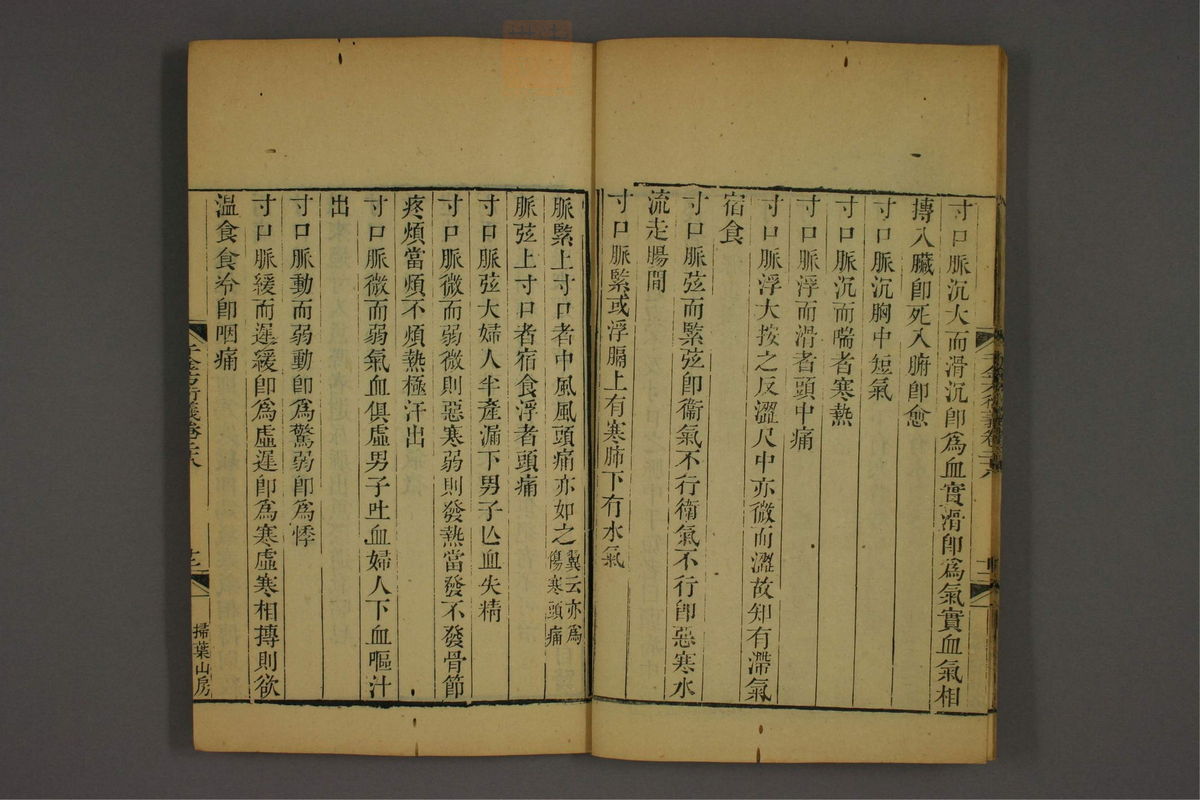 寸口脈沉大而滑沉卽爲血實滑卽爲氣實血氣相
摶入臟卽死入腑卽愈
寸口脈沉胸中短氣
寸口脈沉而喘者寒熱
寸口脈浮而滑者頭中痛
寸口脈浮大按之反澀尺中亦微而澀故知有滯氣
宿食
寸口脈弦而緊弦卽衞氣不行衛氣不行卽惡寒水
流走腸間
寸口脈緊或浮膈上有寒肺下有水氣
脈緊上寸口者中風風頭痛亦如之
翼云亦爲
傷寒頭痛
脈弦上寸口者宿食浮者頭痛
寸口脈弦大婦人半產漏下男子亾血失精
寸口脈微而弱微則惡寒弱則發熱當發不發骨節
疼煩當煩不煩熱極汗出
寸口脈微而弱氣血俱虛男子吐血婦人下血嘔汁
出
寸口脈動而弱動卽爲驚弱卽爲悸
寸口脈緩而遲緩卽爲虛遲卽爲寒虛寒相摶則欲
溫食食冷卽咽痛
千金方衍義卷二十八
掃葉山房